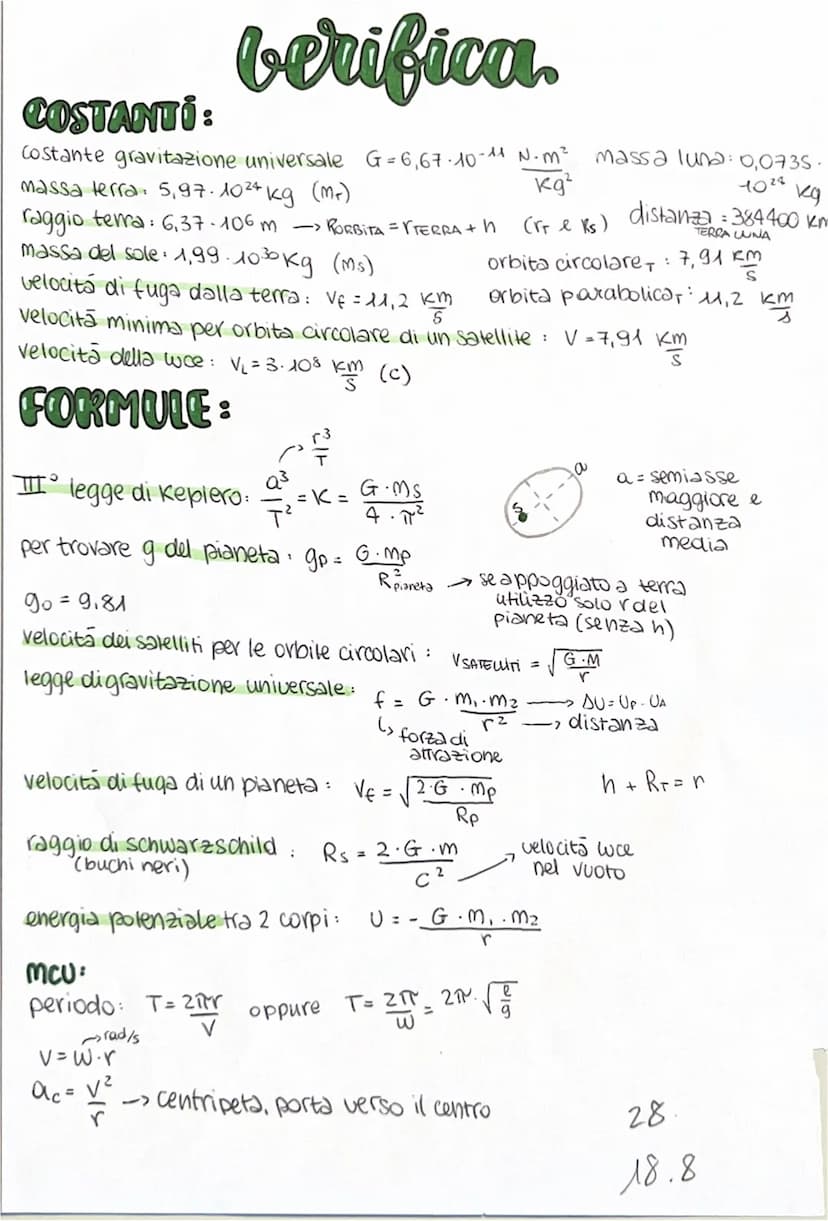 verifica
COSTANTI:
costante gravitazione universale G = 6,67·10⁻¹¹ N·m²/Kg² massa luna: 0,0735·10²⁴ Kg
massa terra: 5,97·10²⁴ Kg (Mᴛ)
raggio terra: 6,37·10⁶ m → RORBITA = rTERRA + h (rᴛ e Rs) distanza TERRA LUNA = 384400 Km
massa del sole: 1,99·10³⁰ Kg (Ms) orbita circolareᴛ: 7,91 Km/s
velocità di fuga dalla terra: Vf = 11,2 Km/s orbita parabolicaᴛ: 11,2 Km/s
velocità minima per orbita circolare di un satellite: V = 7,91 Km/s
velocità della luce: VL = 3·10⁸ Km/s (c)
FORMULE:
→ r³/T
III° legge di Keplero: a³/T² = K = G·Ms/4·π²
a
S
a = semiasse
maggiore e
distanza
media
per trovare g del pianeta: gp = G·Mp/R²pianeta → se appoggiato a terra
utilizzo solo r del
pianeta (senza h)
g₀ = 9.81
velocità dei satelliti per le orbite circolari: VSATELLITI = √G·M/r
legge di gravitazione universale: f = G·m₁·m₂/r² → ΔU = UP - UA
→ distanza
↳ forza di
attrazione
velocità di fuga di un pianeta: Vf = √2·G·Mp/Rp h + Rᴛ = r
raggio di schwarzschild: Rs = 2·G·m/c² → velocità luce
nel vuoto
(buchi neri)
energia potenziale tra 2 corpi: U = - G·m₁·m₂/r
MCU:
periodo: T = 2πr/V oppure T = 2π/ω = 2π·√l/g
→ rad/s
V = ω·r
ac = v²/r → centripeta, porta verso il centro
28
18.8